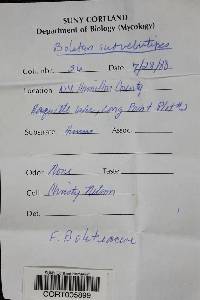 SUNY CORTLAND
Department of Biology (Mycology)
Boletus subvelutipes
Coll. nbr. 34 Date 7/28/88
Location NY Hamilton County
Raquette Lake, Long Point Plot #2
Substrate Humus Assoc.
Odor None Taste
Coll. Christy Nelson
Det.
F. Boletaceae
CORT005899